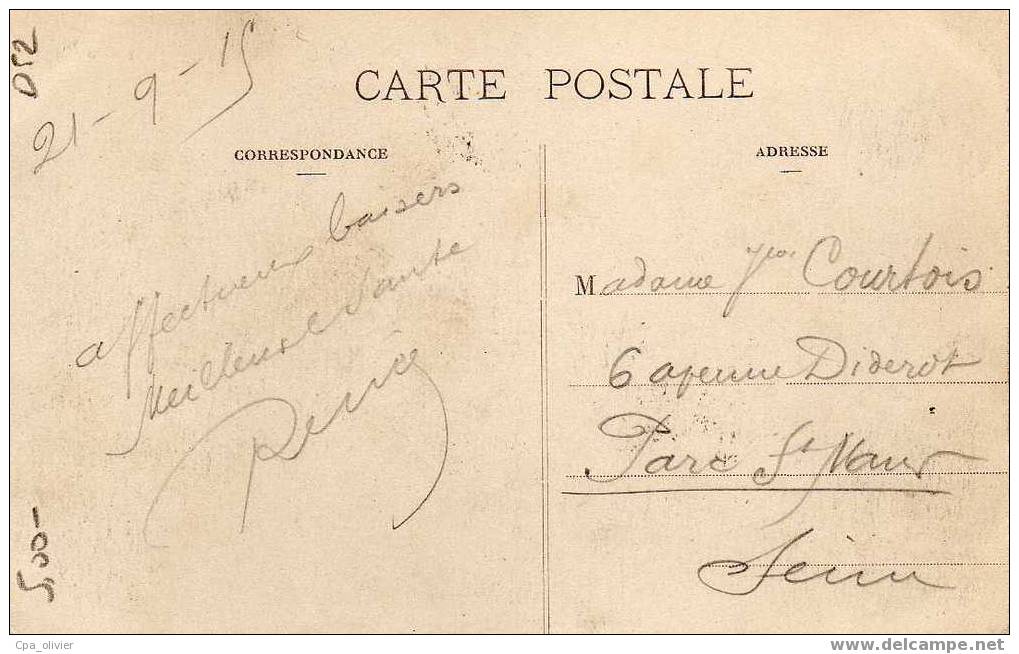 D52
21-9-15
CARTE POSTALE
CORRESPONDANCE
ADRESSE
affectueux baisers
Meilleure Sante
Madame Courtois
6 avenue Diderot
Parc St Maur
Seine
5,00-
Cpa_olivier
www.delcampe.net